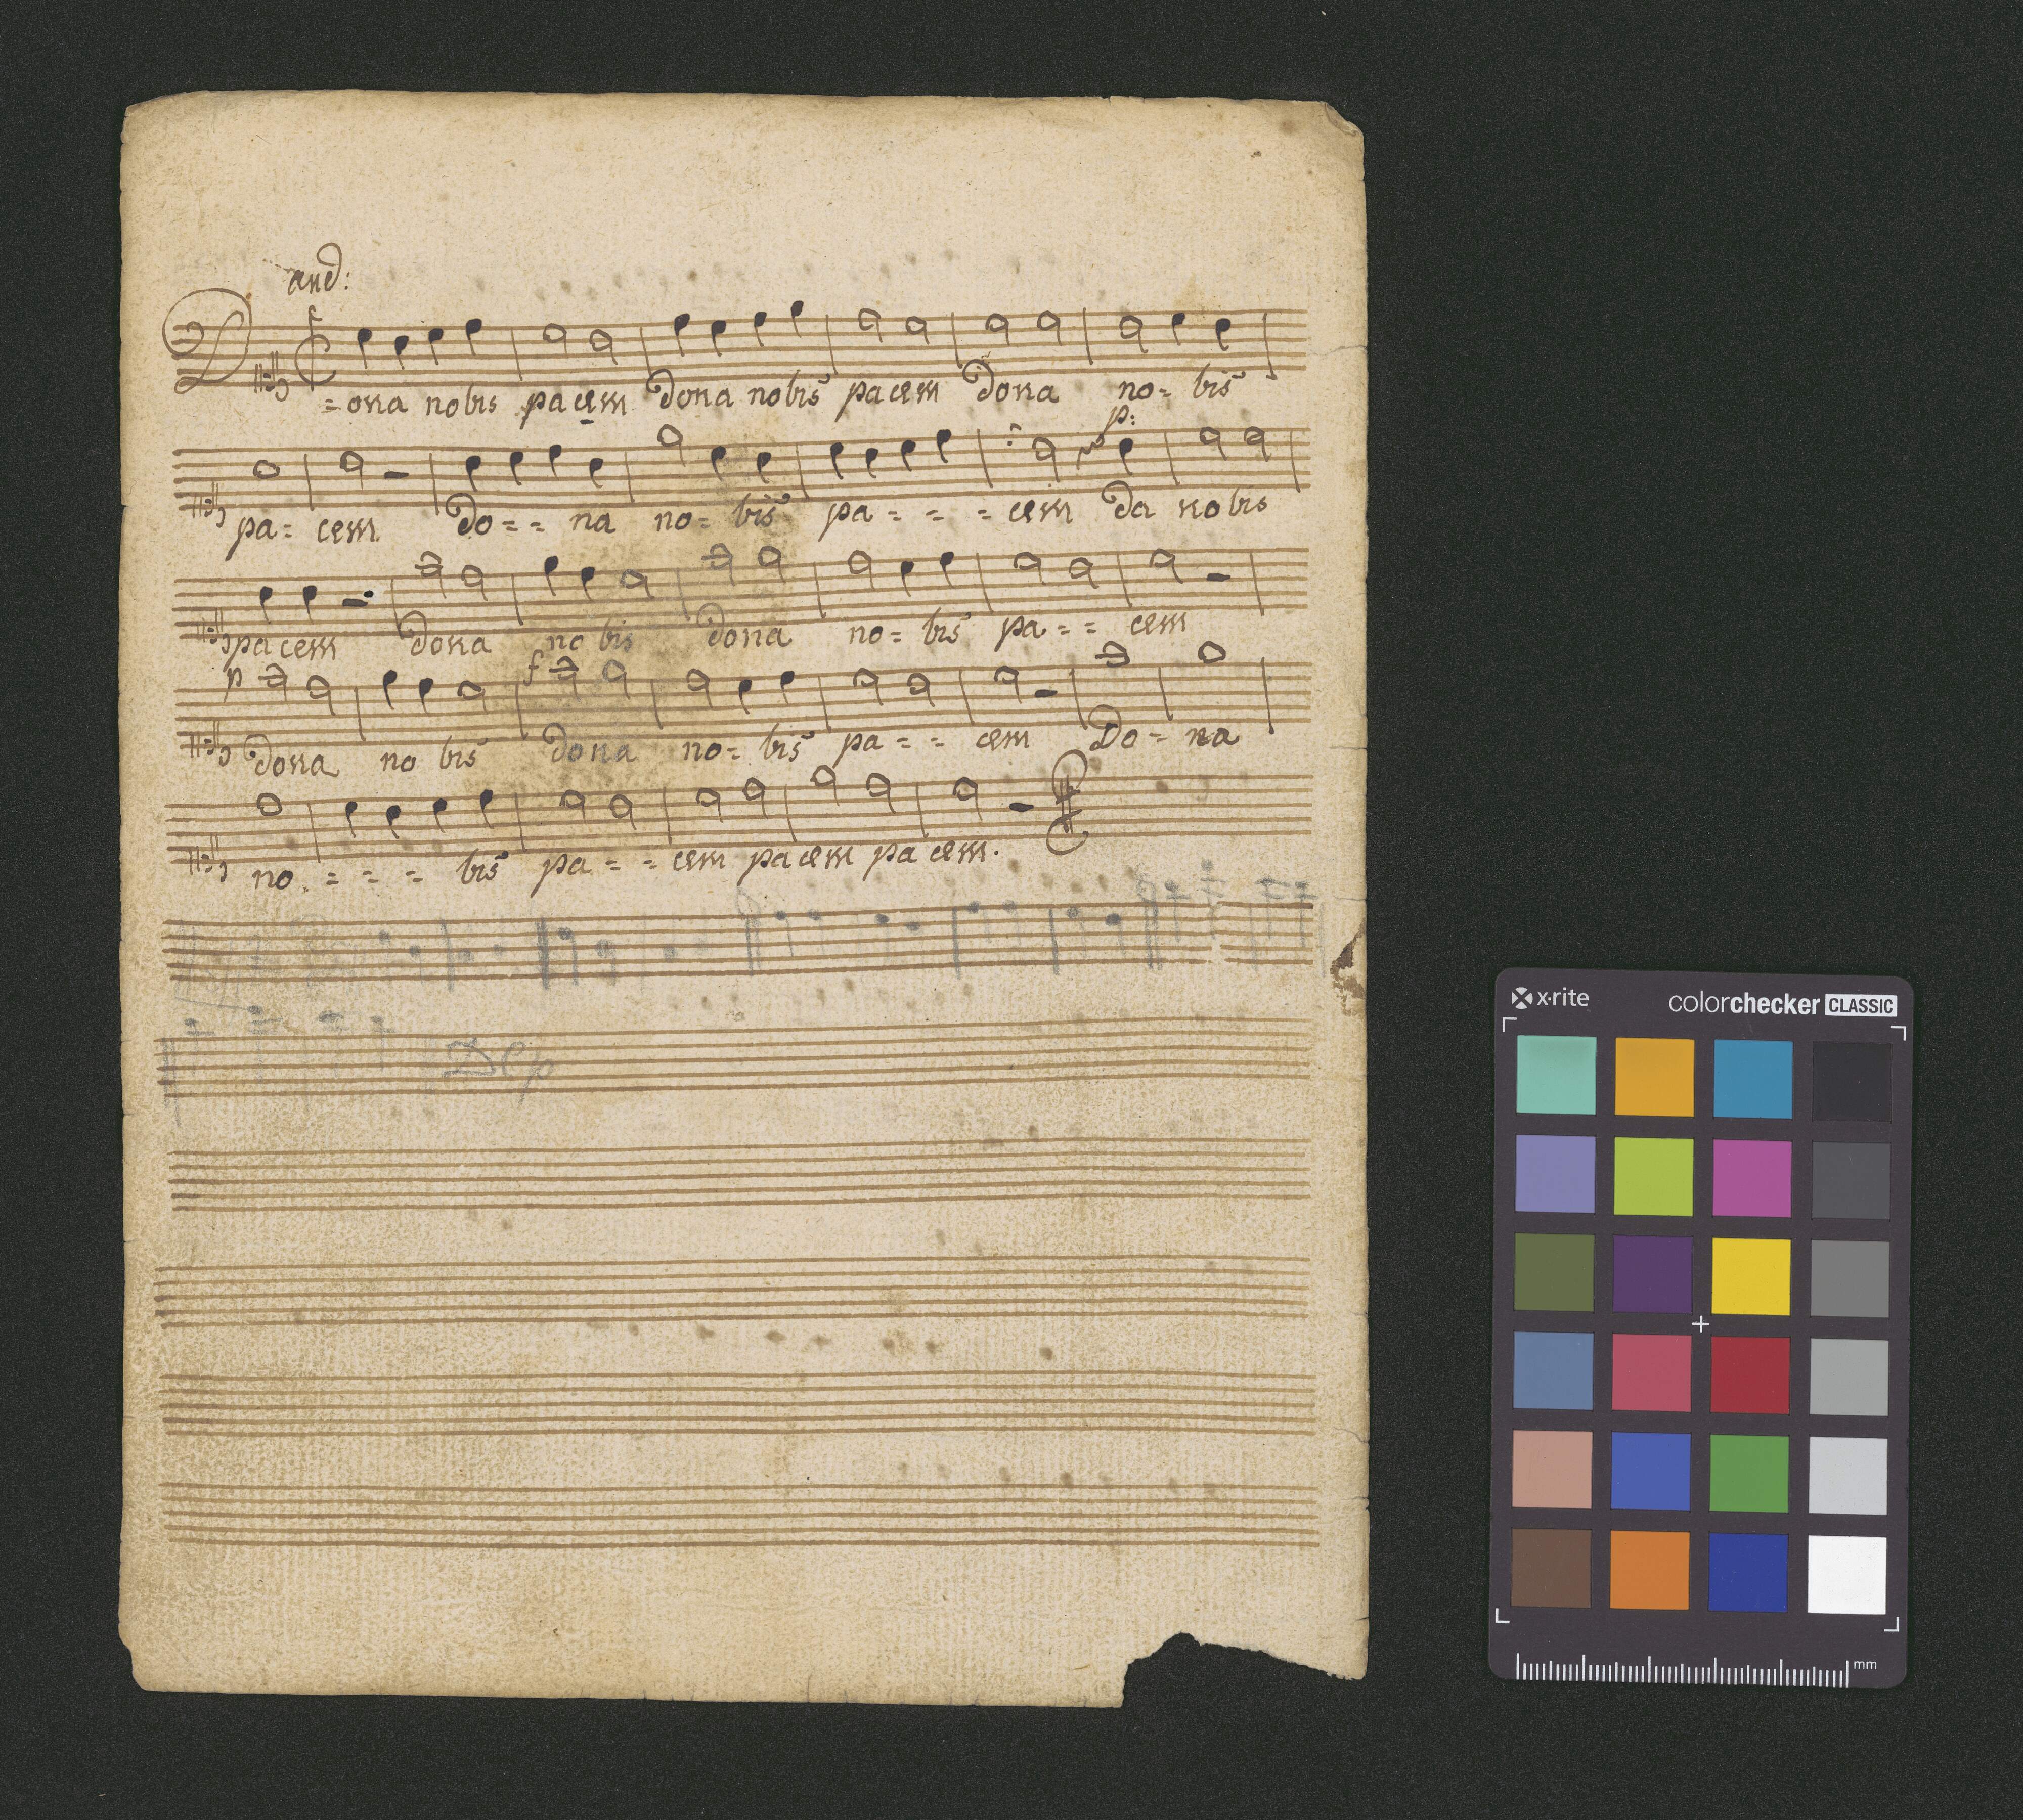 and:
D=ona nobis pacem dona nobis pacem dona no= bis
p:
pa= cem Do== na no= bis pa= = = cem da nobis
pacem dona no bis dona no= bis pa== cem
p f
dona no bis dona no= bis pa== cem Do= na
no. = = = bis pa== cem pacem pa cem.
x·rite colorchecker CLASSIC
mm